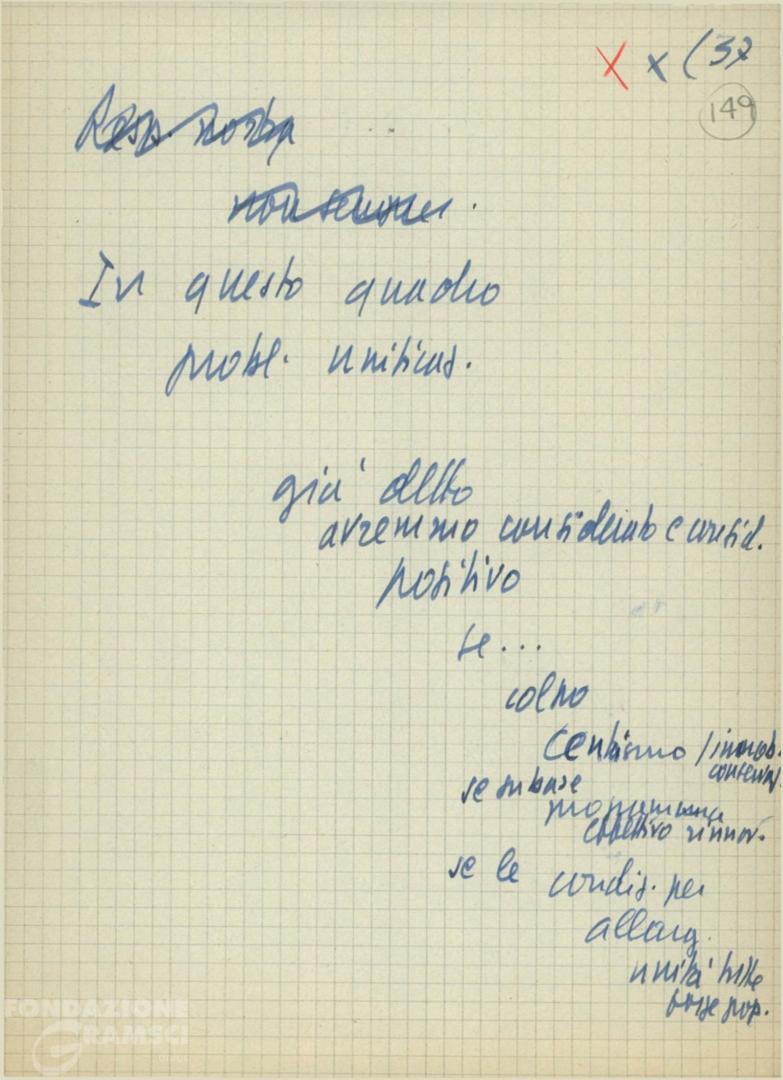 X x (37
149
Resp. nostra
non sempre.
In questo quadro
probl. unificaz.
già detto
avremmo considerato e consid.
positivo
se...
colpo
Centrismo / immob.
conserv.
se su base
programma
obiettivo rinnov.
se le condiz. per
allarg.
unità tutte
forze pop.
FONDAZIONE
GRAMSCI